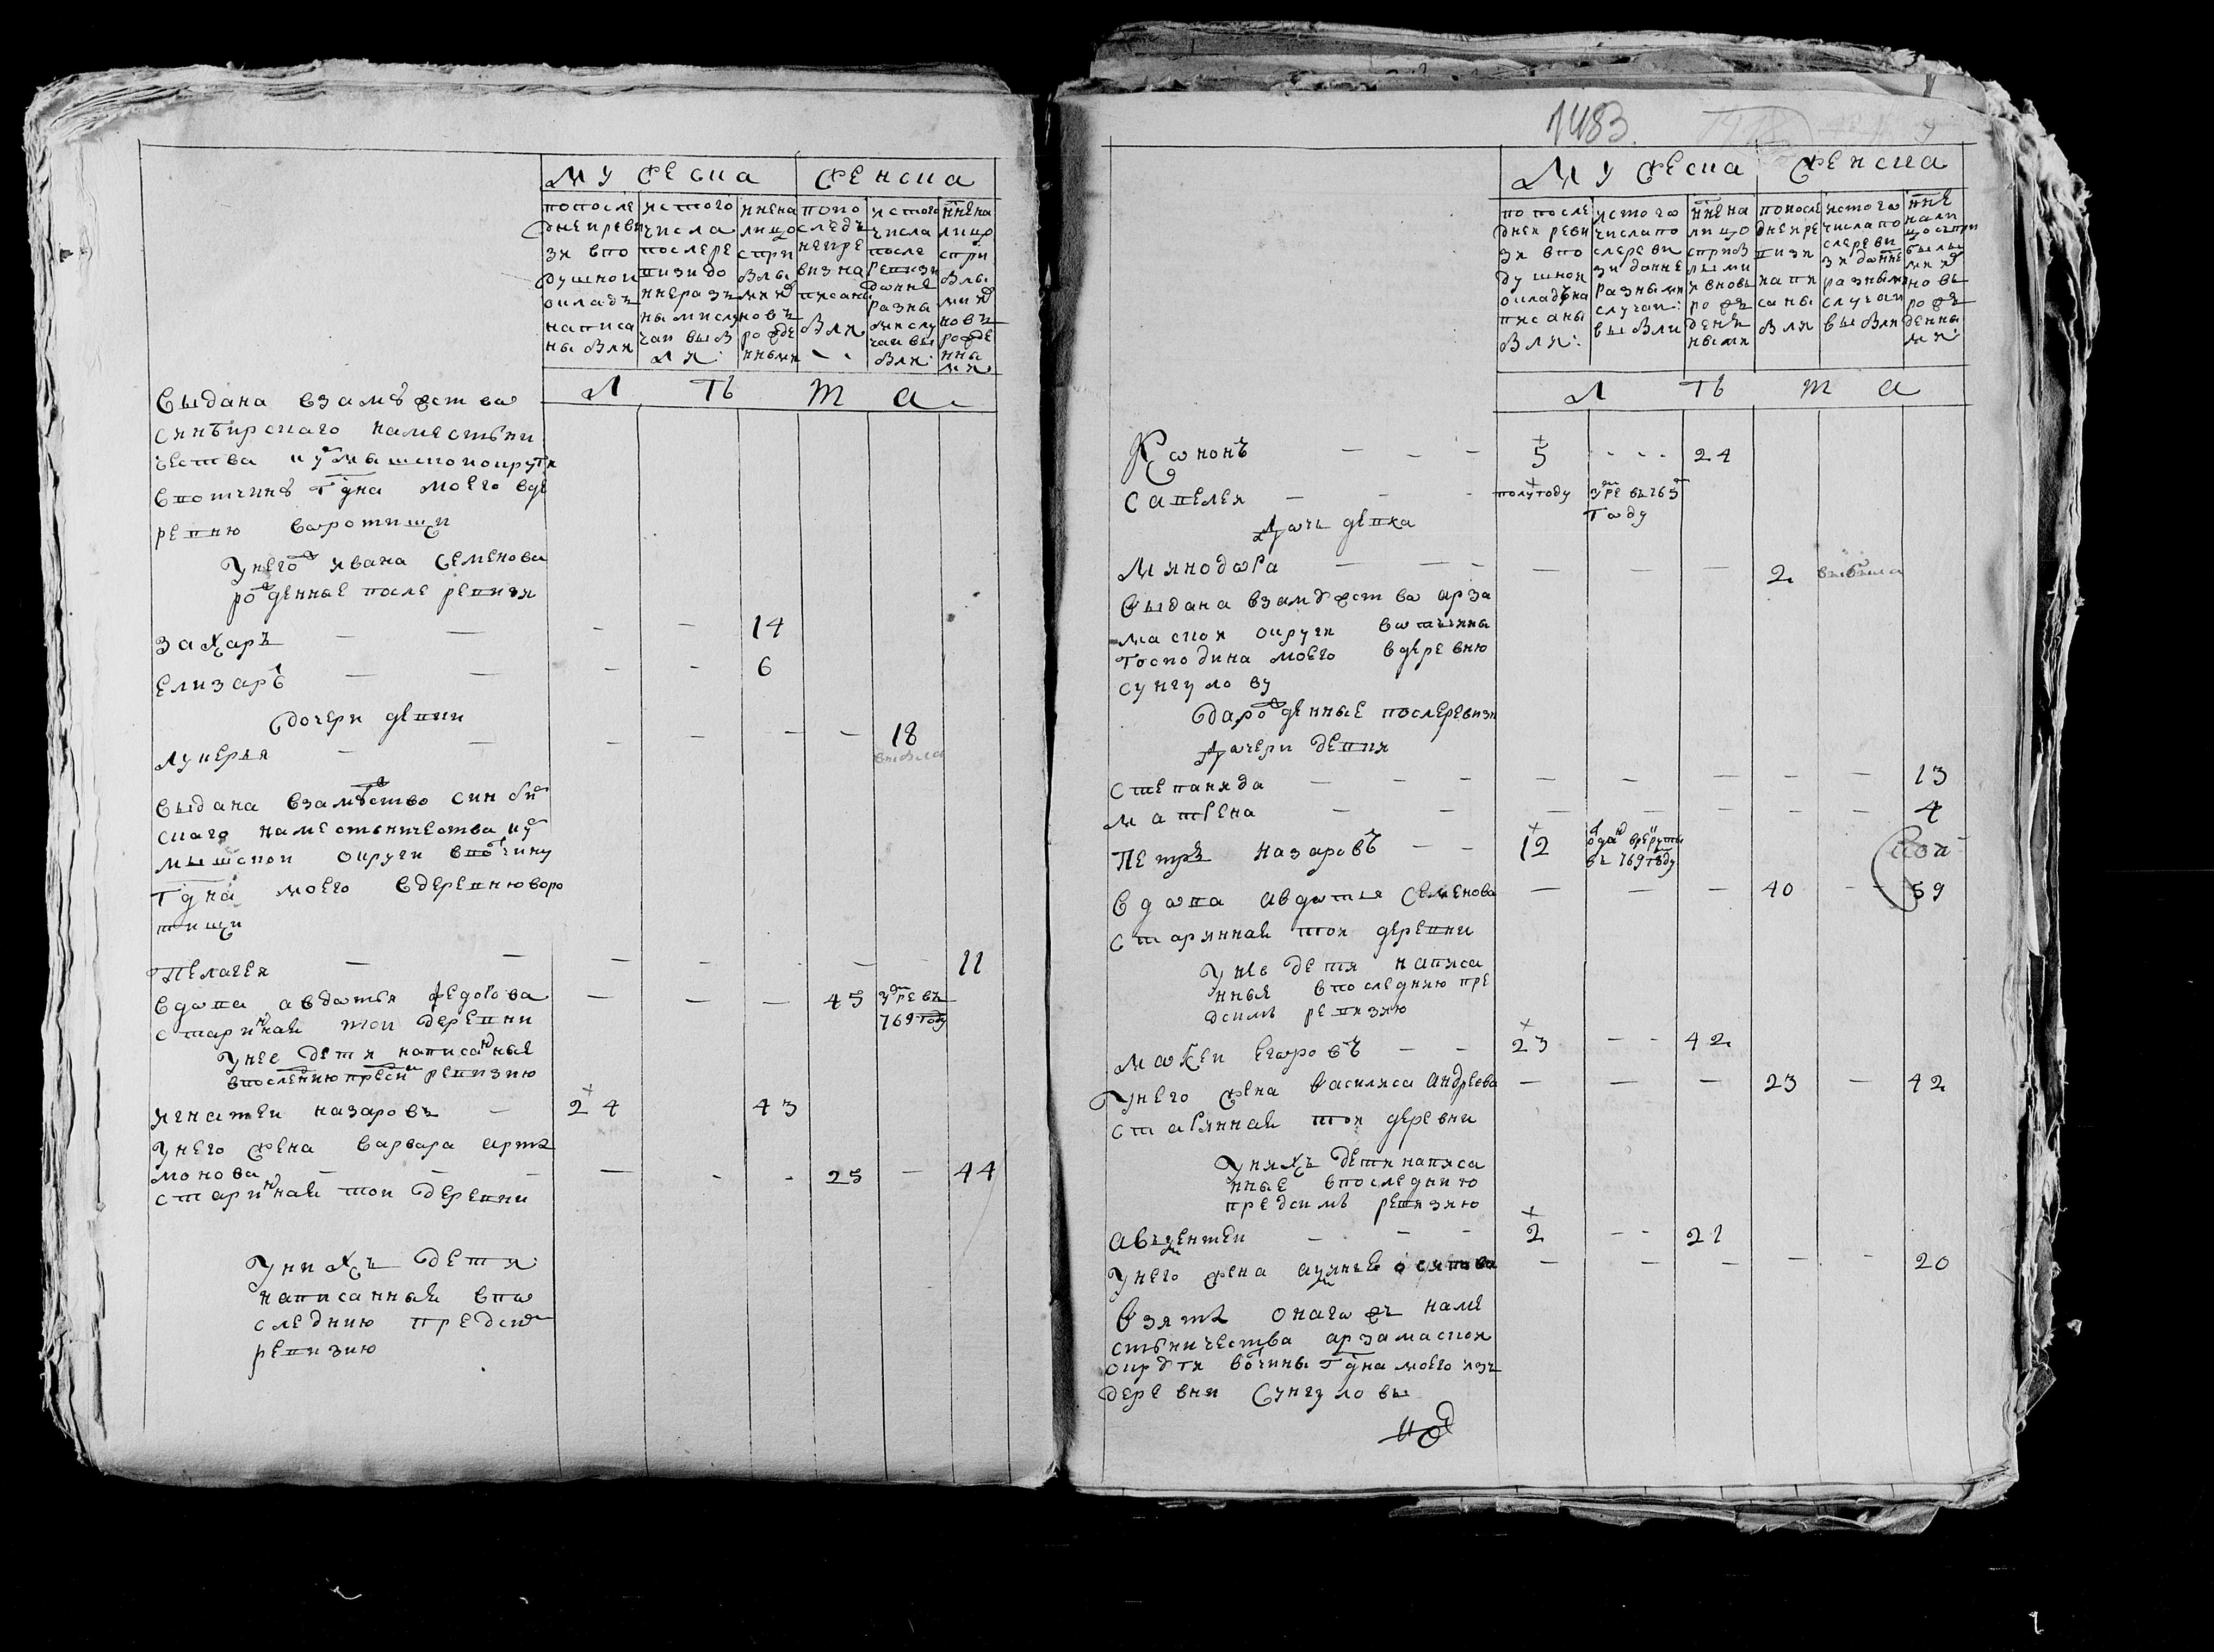 мужеска женска
попосле
днеи реви
зи впо
душнои
окладъ
написа
ны были
истого
числа
послере
визи до
ннеразъ
ными слу
чаи выб
ли:
ннена
лицо
спри
былы
ми и
новъ
рожде
нными
попо
следъ
неире
визна
писаны
были
истого
числа
после
ревизи
донне
разны
мислу
чаи вы
были:
ннена
лицо
спри
былы
ми и
новъ
рожде
нны
ми
Л Ѣ т а
выдана взамѣжство
синбирскаго наместни
чества кумышскои округи
вотчинѣ гдна моего вде
ревню воротищи
Унего ивана семенова
рожденные после ревизи
захаръ — — - - 14
елизаръ — — - - 6
дочери девки
лукерья — — - - - - 18
выбыла
выдана взамѣжство синби
скаго наместничества ку
мышскои округи вотчину
гдна моего вдеревню воро
тищи
Пелагея — — — - — - 11
вдова авдотья федорова — — — 45 умре въ
769 году
старинная тои деревни
Унее дети написанные
впоследнию пресим ревизию
игнатеи назаровъ — 24 43
Унего жена варвара арта
монова — - - — - - 25 — 44
старинная тои деревни
Унихъ дети
написанныи впо
следнию предсим
ревизию
1483.
мужеска женска
по после
днеи реви
зи впо
душнои
окладъна
писаны
были:
истого
числапо
слереви
зи донне
разными
случаи:
выбыли
ннена
лицо
сприб
лыми
ивновь
рож
денъ
ными
попосле
днеире
визи
напи
саны
были
истого
числапо
слереви
зи донне
разными
случаи
выбыли
нне
нали
цосъпри
былы
ми и
новь
рож
денны
ми
Л Ѣ т а
Кононъ — - - 5 - - - 24
савелеи — - - полугоду умре въ765
году
дочь девка
минодора — — - — — — 2 выбыла
выдана взамужство арза
маскои округи вотчины
господина моего вдеревню
сунгулову
дарожденные послеревизи
дочери девки
степанида — - - — - — — — 13
матрена — — — — — - - 4
Петръ назаровъ — - 12 отдан врекруты
въ 769 году
вдова авдотья семенова — — - 40 - - 59
старинная тои деревни
Унее дети написа
нные впоследнию пре
дсимъ ревизию
мокеи егоровъ — - 23 - - 42
Унего жена василиса андреева — — — 23 — 42
старинная тои деревни
Унихъ дети написа
нные впоследнию
предсимъ ревизию
авъксентеи - — - - 2 - - 21
Унего жена — — - — - 20
взята онагож наме
стничества арзамаскои
округи вотчины гдна моего изъ
деревни сунгуловы